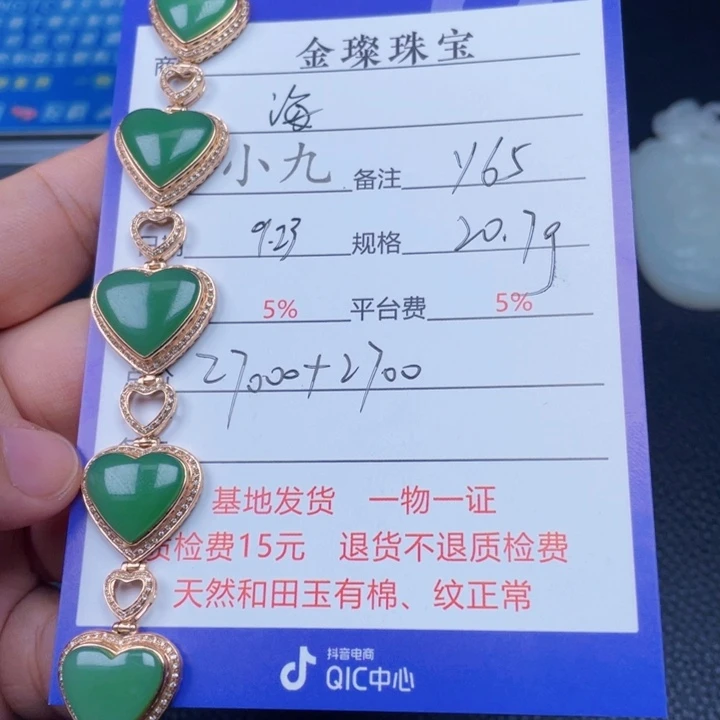 商 金璨珠宝
海
小九 备注 Y65
9.23 规格 20.7g
5% 平台费 5%
27000+2700
基地发货 一物一证
质检费15元 退货不退质检费
天然和田玉有棉、纹正常
抖音电商
QIC中心